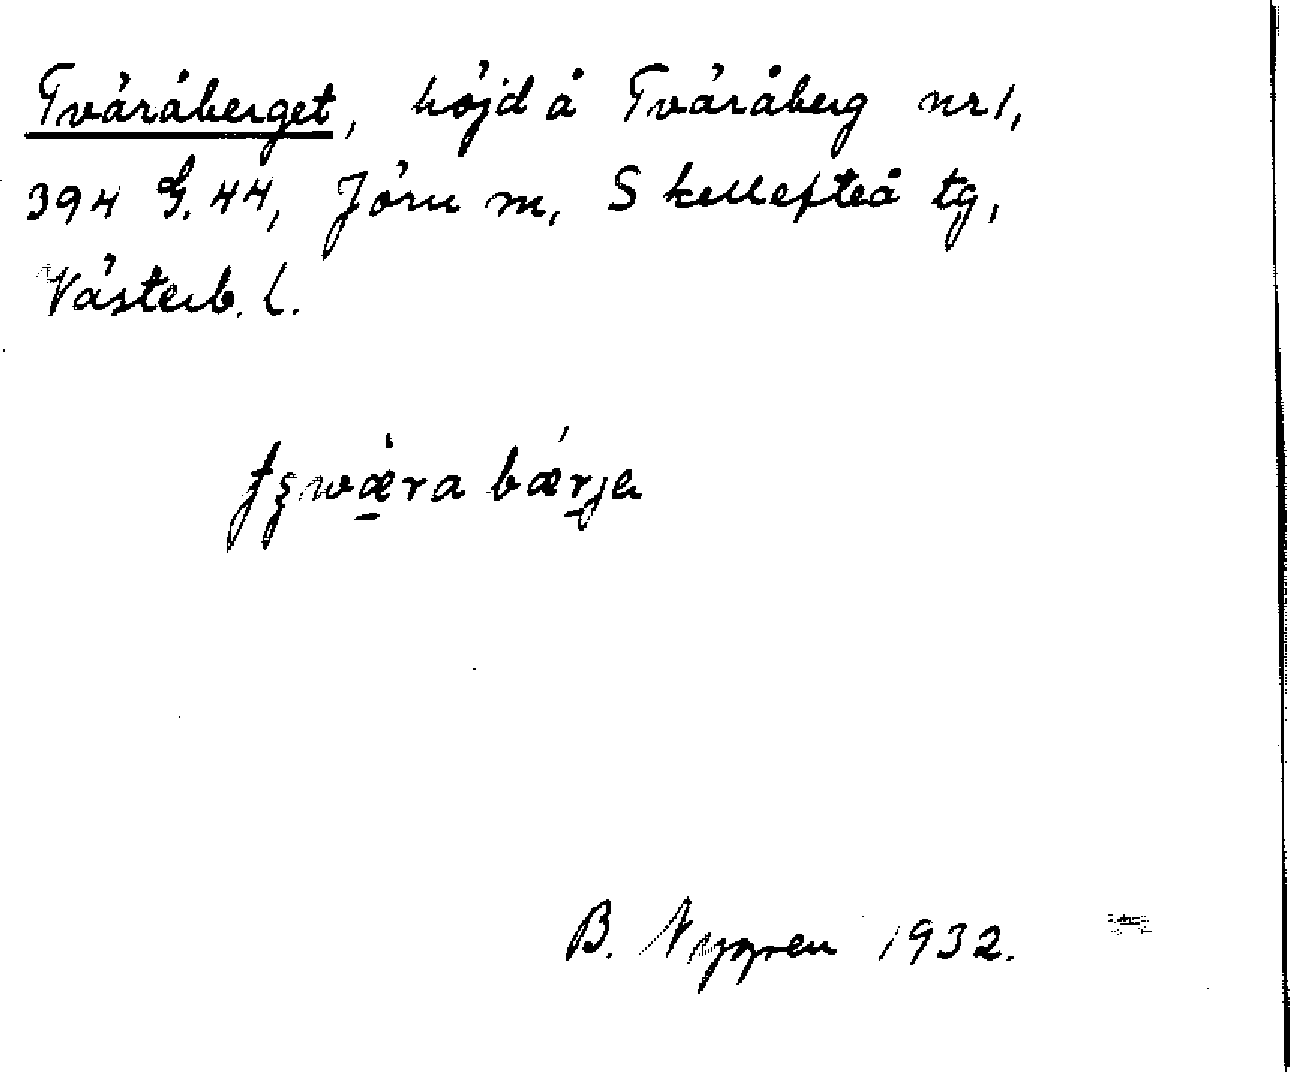 Tväråberget, höjd å Tväråberg nr 1,
394 G. 44, Jörn m, Skellefteå tg,
Västerb. l.
bærja
B. Nygren 1932.